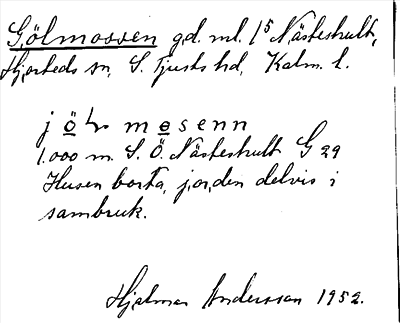 Gölmossen gd. ml. 1⁵ Nästeshult,
Hjorteds sn, S. Tjusts hd, Kalm. l.
jöl mosenn
1.000 m. S. Ö. Nästeshult G 29
Husen borta, jorden delvis i
sambruk.
Hjalmar Andersson 1952.